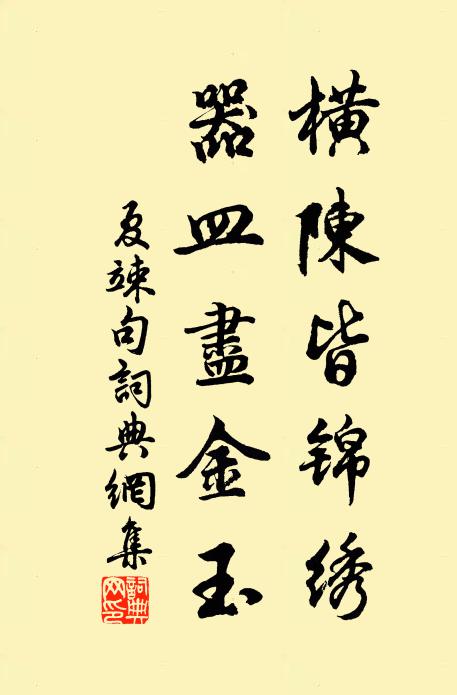 橫陳皆锦绣
器皿盡金玉
夏竦句詞典網集
詞典网印